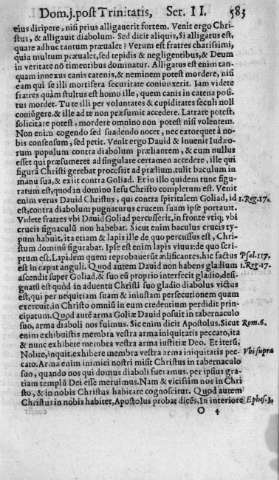 Dom. j. post Trinitatis, Ser. II. 583
eius diripere, nisi prius alligauerit fortem. Venit ergo Chri-
stus, & alligauit diabolum. Sed dicit aliquis, si alligatus est,
quare adhuc tantum præualet? Verum est fratres charissimi,
quia multum præualet, sed tepidis & negligentibus, & Deum
in veritate nō timentibus dominatur. Alligatus est enim tan-
quam innexus canis catenis, & neminem potest mordere, nisi
eum qui se illi mortifera securitate coniunxerit. Iam videte
fratres quàm stultus est homo ille, quem canis in catena posi-
tus mordet. Tu te illi per voluntates & cupiditates seculi noli
coniūgere, & ille ad te non præsumit accedere. Latrare potest,
solicitare potest, mordere omnino non potest nisi volentem.
Non enim cogendo sed suadendo nocet, nec extorquet à no-
bis consensum, sed petit. Venit ergo Dauid & inuenit Iudæo-
rum populum contra diabolum præliantem, & cum nullus
esset qui præsumeret ad singulare certamen accedere, ille qui
figurā Christi gerebat processit ad prælium, tulit baculum in
manu sua, & exiit contra Goliad. Et in illo quidem tunc figu-
ratum est, quod in domino Iesu Christo completum est. Venit
enim verus Dauid Christus, qui contra spiritalem Goliad, id
est, contra diabolum pugnaturus crucem suam ipse portauit.
Videte fratres vbi Dauid Goliad percusserit, in fronte vtiq; vbi
crucis signaculū non habebat. Sicut enim baculus crucis ty-
pum habuit, ita etiam & lapis ille de quo percussus est, Chri-
stum domini figurabat. Ipse est enim lapis viuus de quo scri-
ptum est. Lapidem quem reprobauerūt ædificantes, hic factus
est in caput anguli. Quod autem Dauid non habens gladium
ascendit super Goliad, & suo eū proprio interfecit gladio, desi-
gnatū est quòd in aduentu Christi suo gladio diabolus victus
est, qui per nequitiam suam & iniustam persecutionem quam
exercuit in Christo omniū in eum credentium perdidit prin-
cipatum. Quod autē arma Goliæ Dauid posuit in tabernaculo
suo, arma diaboli nos fuimus. Sic enim dicit Apostolus. Sicut
enim exhibuistis membra vestra arma iniquitatis peccato, ita
& nunc exhibete membra vestra arma iustitiæ Deo. Et iterū,
Nolite, inquit exhibere membra vestra arma iniquitatis pec-
cato. Arma enim inimici nostri misit Christus in tabernaculo
suo, quando nos qui domus diaboli fueramus, per ipsius gra-
tiam templū Dei esse meruimus. Nam & vicissim nos in Chri-
sto, & in nobis Christus habitare cognoscitur. Quod autem
Christus in nobis habitet, Apostolus probat dicēs, In interiore
1. Reg. 17.
Psal. 117.
1. Reg. 17.
Rom. 6.
Vbi supra
Ephes. 3.
O 4